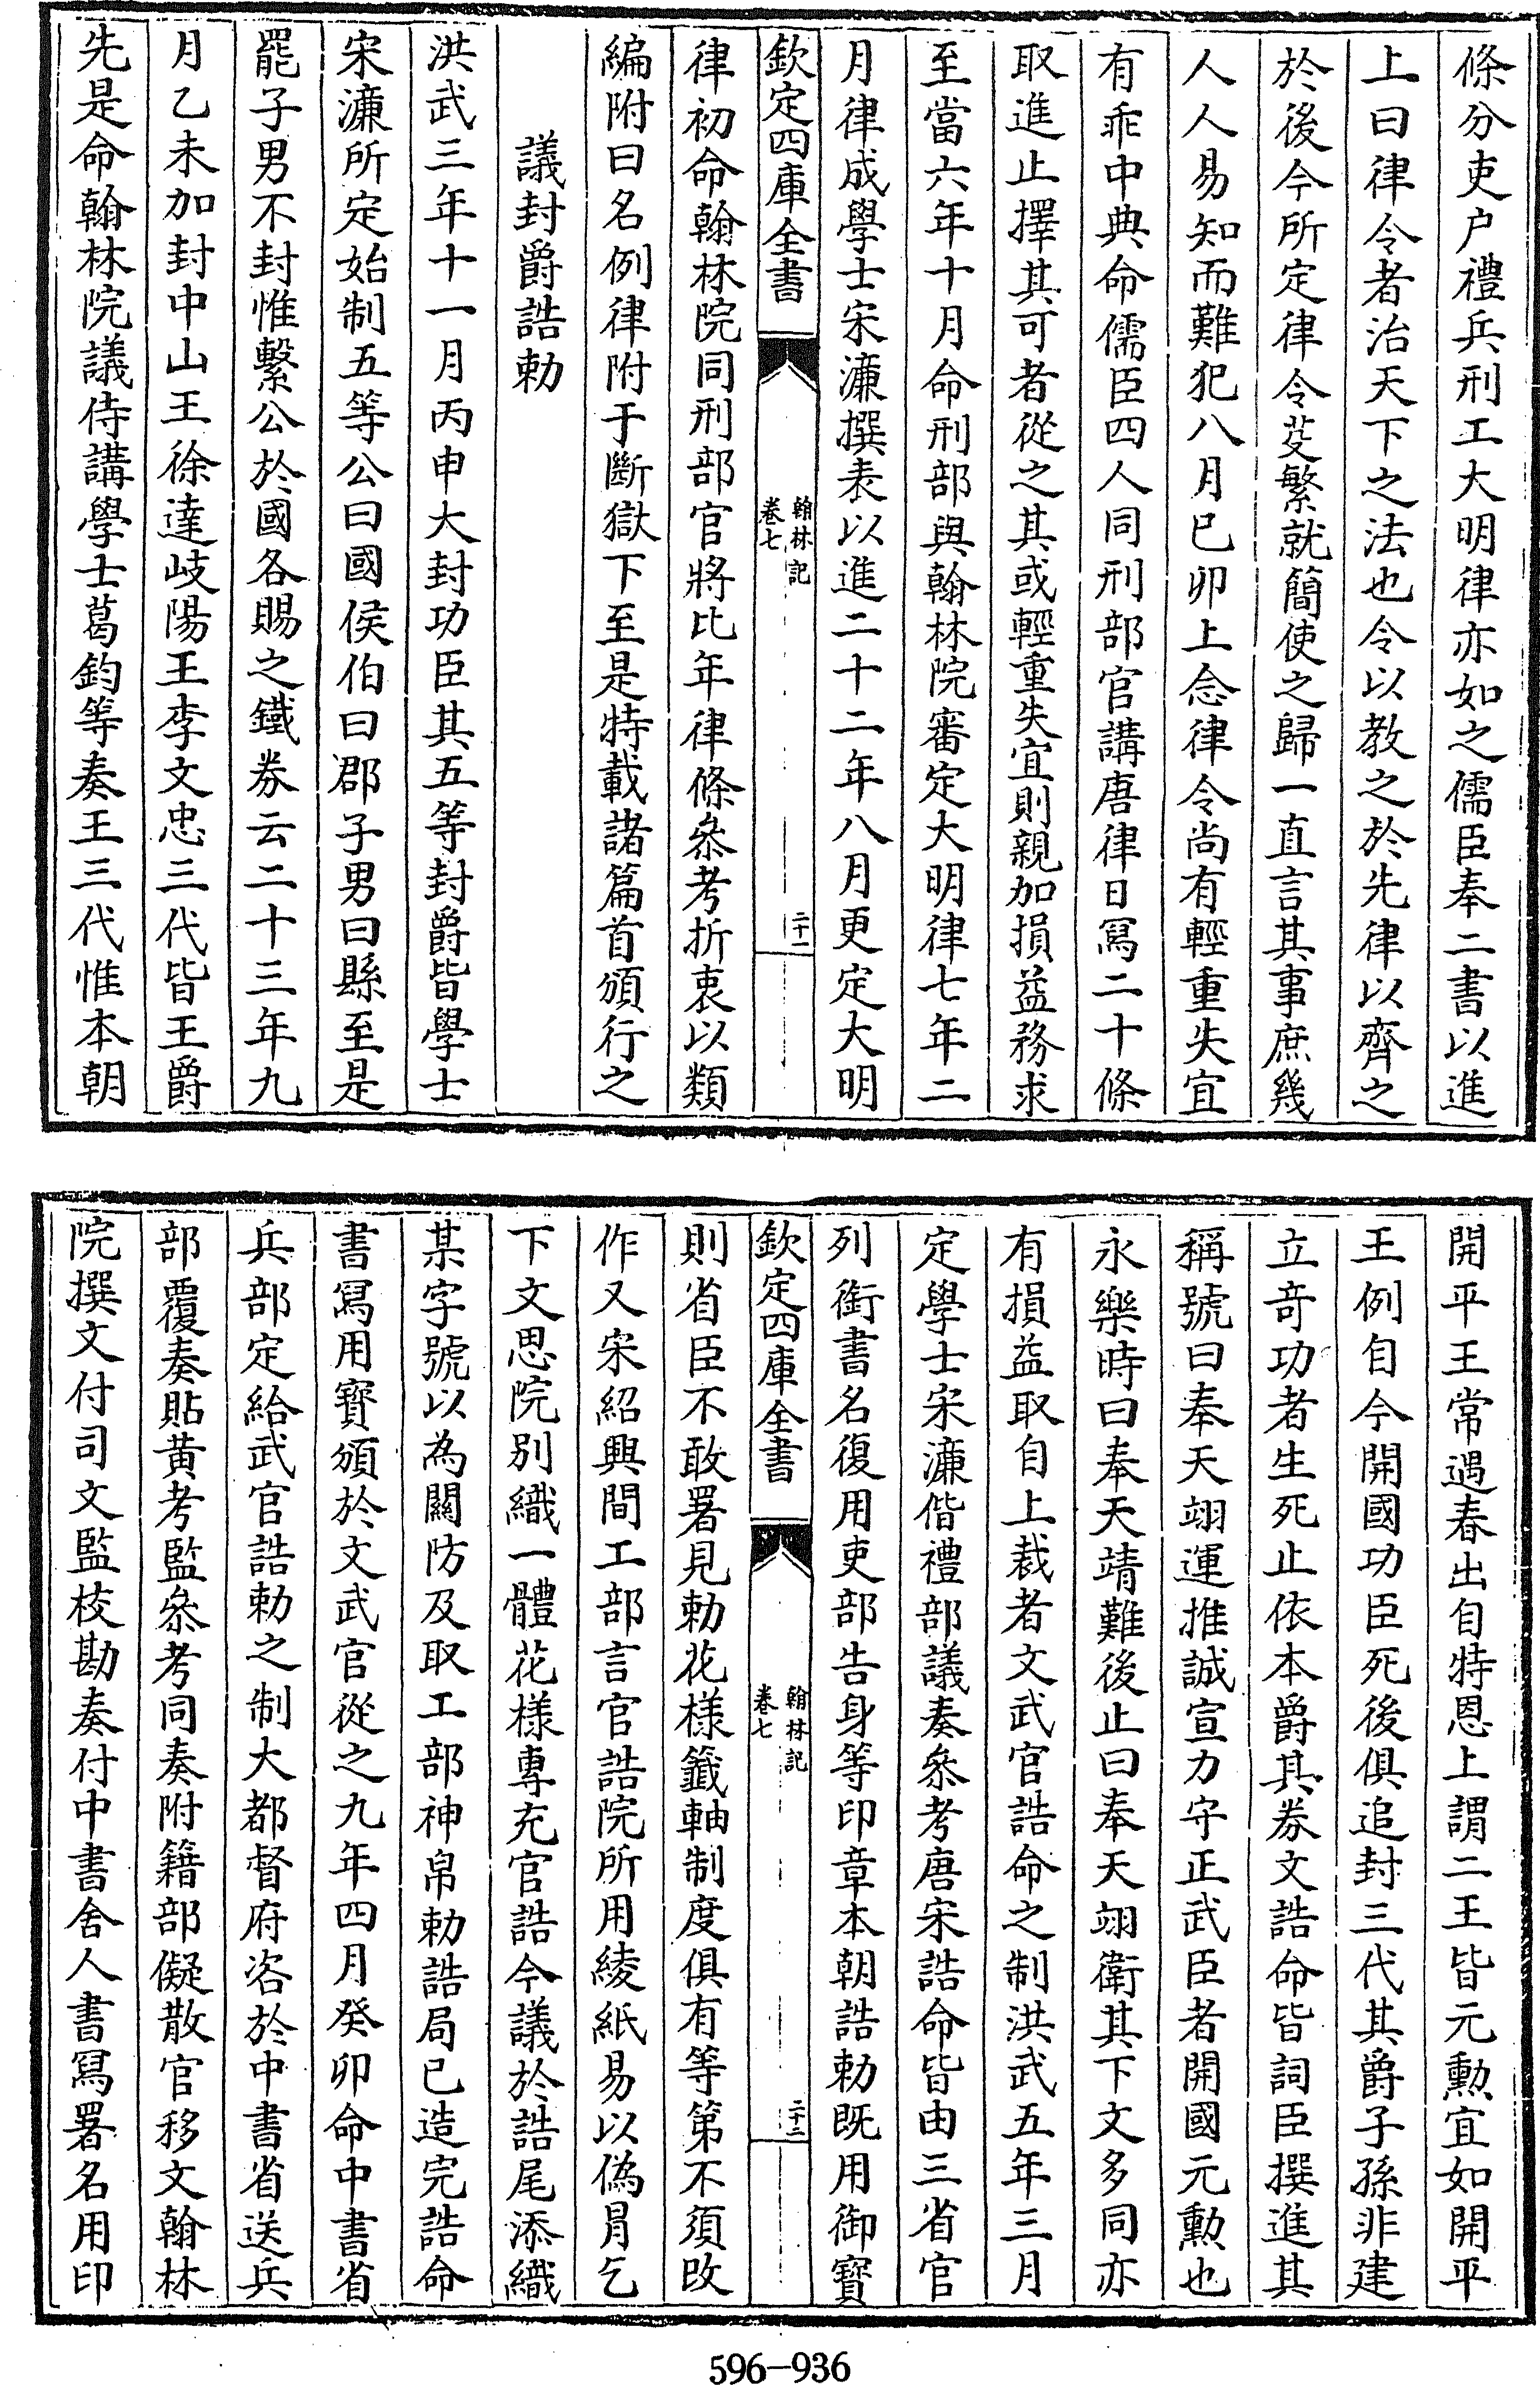 條分吏户禮兵刑工大明律亦如之儒臣奉二書以進
上曰律令者治天下之法也令以教之於先律以齊之
於後今所定律令芟繁就簡使之歸一直言其事庶幾
人人易知而難犯八月已卯上念律令尚有輕重失宜
有乖中典命儒臣四人同刑部官講唐律日冩二十條
取進止擇其可者從之其或輕重失宜則親加損益務求
至當六年十月命刑部與翰林院審定大明律七年二
月律成學士宋濓撰表以進二十二年八月更定大明
欽定四庫全書
翰林記
卷七
二十一
律初命翰林院同刑部官將比年律條叅考折衷以類
編附曰名例律附于斷獄下至是特載諸篇首頒行之
議封爵誥勅
洪武三年十一月丙申大封功臣其五等封爵皆學士
宋濓所定始制五等公曰國侯伯曰郡子男曰縣至是
罷子男不封惟繫公於國各賜之鐵券云二十三年九
月乙未加封中山王徐達岐陽王李文忠三代皆王爵
先是命翰林院議侍講學士葛鈞等奏王三代惟本朝
開平王常遇春出自特恩上謂二王皆元勲宜如開平
王例自今開國功臣死後俱追封三代其爵子孫非建
立竒功者生死止依本爵其券文誥命皆詞臣撰進其
稱號曰奉天翊運推誠宣力守正武臣者開國元勲也
永樂時曰奉天靖難後止曰奉天翊衛其下文多同亦
有損益取自上裁者文武官誥命之制洪武五年三月
定學士宋濓偕禮部議奏叅考唐宋誥命皆由三省官
列銜書名復用吏部告身等印章本朝誥勅既用御寳
欽定四庫全書
翰林記
卷七
二十二
則省臣不敢署見勅花樣籤軸制度俱有等第不須改
作又宋紹興間工部言官誥院所用綾紙易以偽冐乞
下文思院别織一體花樣專充官誥今議於誥尾添織
某字號以為關防及取工部神帛勅誥局已造完誥命
書冩用寳頒於文武官從之九年四月癸卯命中書省
兵部定給武官誥勅之制大都督府咨於中書省送兵
部覆奏貼黄考監叅考同奏附籍部儗散官移文翰林
院撰文付司文監校勘奏付中書舍人書冩署名用印
596-936